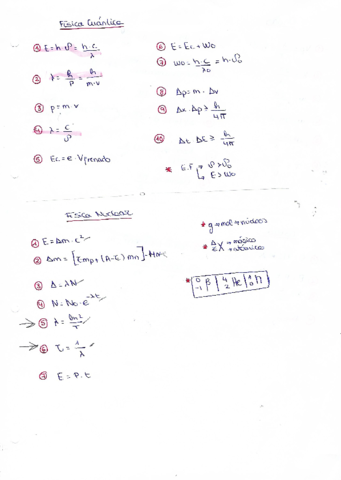 Física Cuántica
① E = h·ν = h·c/λ
② λ = h/p = h/m·v
③ p = m·v
④ λ = c/ν
⑤ Ec = e·Vfrenado
⑥ E = Ec + Wo
⑦ Wo = h·c/λo = h·νo
⑧ Δp = m·Δv
⑨ Δx·Δp ≥ h/4π
⑩ Δt ΔE ≥ h/4π
* E.F → ν > νo
→ E > Wo
Física Nuclear
① E = Δm·c²
② Δm = [Z mp + (A-Z) mn] -
③ A = λN
④ N = No·e^-λt
→ ⑤ λ = ln2/T
→ ⑥ τ = 1/λ
⑦ E = P·t
* g → mol → núcleos
* A Z X → másico
→ atómico
* 0 -1 β | 4 2 He | 1 0 n